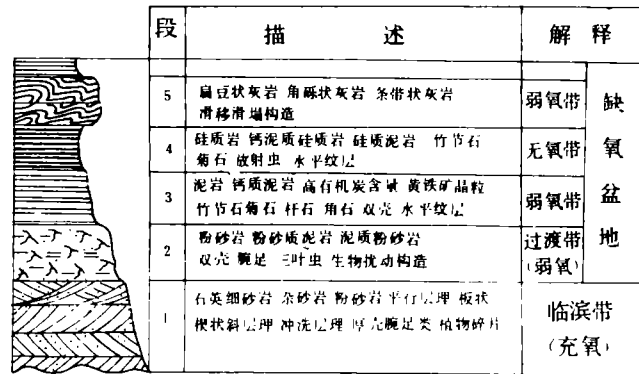 段 描 述 解 释
5 扁豆状灰岩 角砾状灰岩 条带状灰岩
滑移滑塌构造
弱氧带
4 硅质岩 钙泥质硅质岩 硅质泥岩 竹节石
菊石 放射虫 水平纹层
无氧带
3 泥岩 钙质泥岩 高有机炭含量 黄铁矿晶粒
竹节石菊石 杆石 角石 双壳 水平纹层
弱氧带
2 粉砂岩 粉砂质泥岩 泥质粉砂岩
双壳 腕足 三叶虫 生物扰动构造
过渡带
(弱氧)
缺氧盆地
1 石英细砂岩 杂砂岩 粉砂岩 平行层理 板状
楔状斜层理 冲洗层理 厚壳腕足类 植物碎片
临滨带
(充氧)